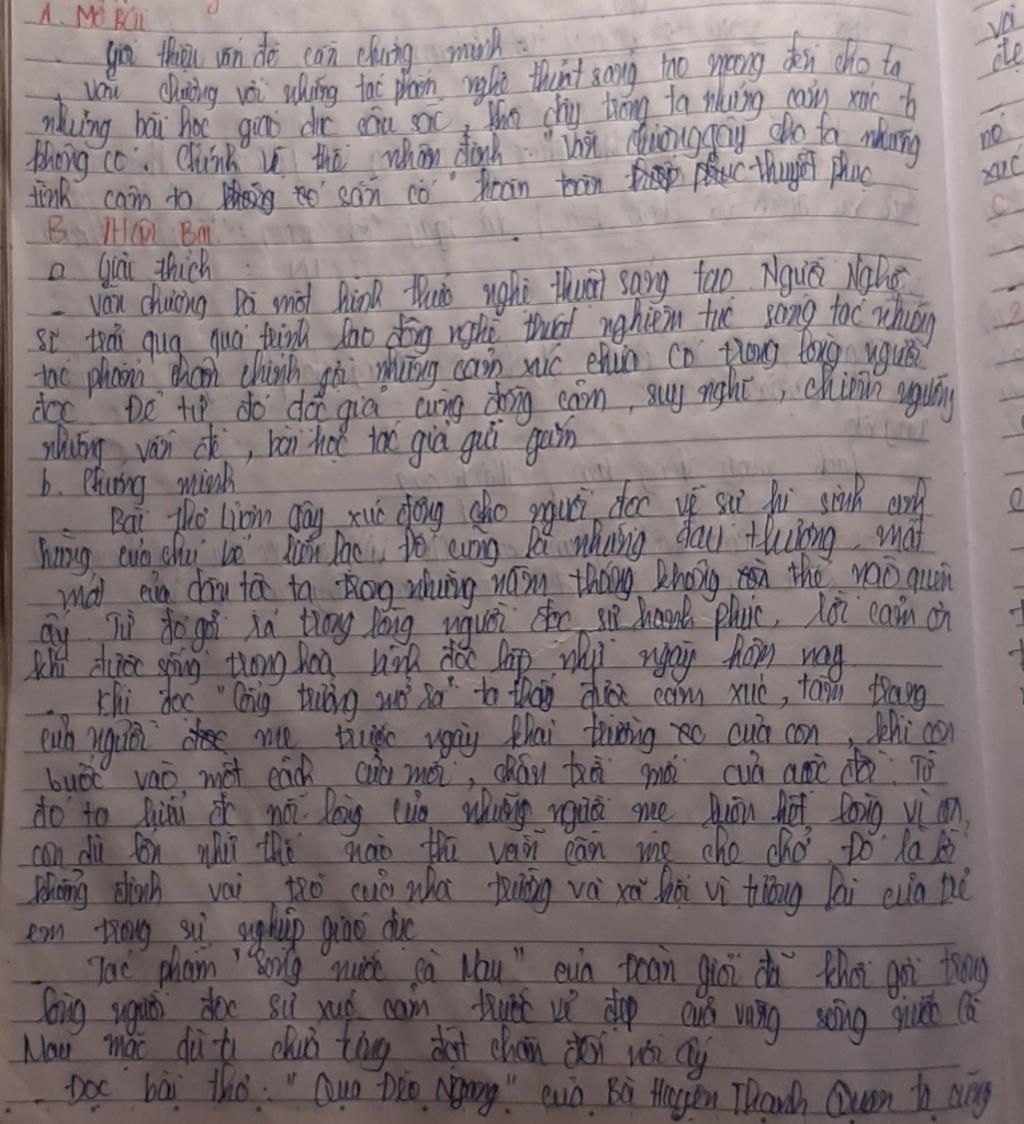 A. Mở Bài
Giới thiệu vấn đề cần chứng minh:
+ Văn chương với những tác phẩm nghệ thuật sáng tạo mang đến cho ta
những bài học giáo dục sâu sắc, khơi dậy trong ta những cảm xúc ta
không có. Chính vì thế nhận định "Văn chương gây cho ta những
tình cảm ta không có sẵn có" hoàn toàn thuyết phục
B. Thân Bài
a. Giải thích:
- Văn chương là một hình thức nghệ thuật sáng tạo. Người Nghệ
sĩ trải qua quá trình lao động nghệ thuật nghiêm túc sáng tác những
tác phẩm chân chính gợi những cảm xúc chưa có trong lòng người
đọc. Để từ đó độc giả cùng đồng cảm, suy nghĩ, chiêm ngưỡng
những vấn đề, bài học tác giả gửi gắm
b. Chứng minh
- Bài thơ Lượm gây xúc động cho người đọc về sự hi sinh anh
hùng của chú bé liên lạc. Đó cũng là những đau thương, mất
mát của dân tộc ta trong những năm tháng không thể nào quên
ấy. Từ đó gợi ra trong lòng người đọc sự hạnh phúc, lời cảm ơn
khi được sống trong hoà bình độc lập như ngày hôm nay
- Khi đọc "Cổng trường mở ra" ta thấy được cảm xúc, tâm trạng
của người mẹ trước ngày khai trường của con, khi con
bước vào một cánh cửa mới, chân trời mới của cuộc đời. Từ
đó ta hiểu đc nỗi lòng của những người mẹ luôn hết lòng vì con,
con dù lớn như thế nào thì vẫn cần mẹ che chở. Đó là lời
khẳng định vai trò của nhà trường và xã hội vì tương lai của trẻ
em trong sự nghiệp giáo dục
- Tác phẩm "Sông nước Cà Mau" của Đoàn Giỏi đã khơi gợi trong
lòng người đọc sự xúc cảm trước vẻ đẹp của vùng sông nước Cà
Mau mặc dù ta chưa từng đặt chân đến nơi ấy
- Đọc bài thơ: "Qua Đèo Ngang" của Bà Huyện Thanh Quan ta cũng